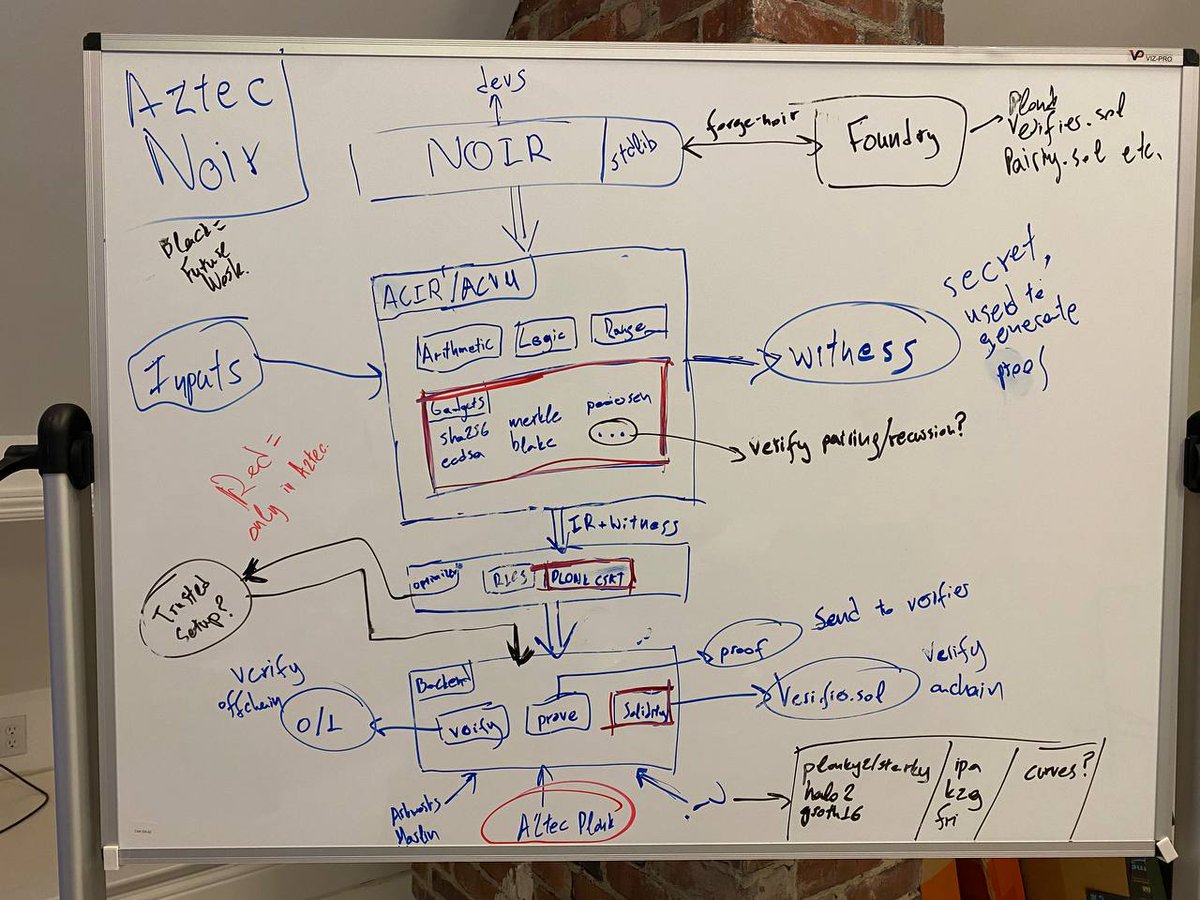 VIZ-PRO
Aztec
Noir
devs
NOIR
/stdlib
forge-noir
Foundry
Verifies.sol
Pairing.sol etc.
Black =
Future
Work.
ACIR/ACVM
Arithmetic
Logic
Range
Inputs
witness
secret,
used to
generate
proof
Gadgets
sha256
ecdsa
merkle
blake
...
verify pairing/recursion?
Red =
only in Aztec.
IR + Witness
R1CS
PLONK CSAT
Trusted
Setup?
proof
Send to verifier
Backend
verify
offchain
0/1
verify
prove
Solidity
Verifier.sol
verify
onchain
Arkworks
Marlin
Aztec Plonk
?
plonky2/starky
halo2
groth16
ipa
kzg
fri
curves?